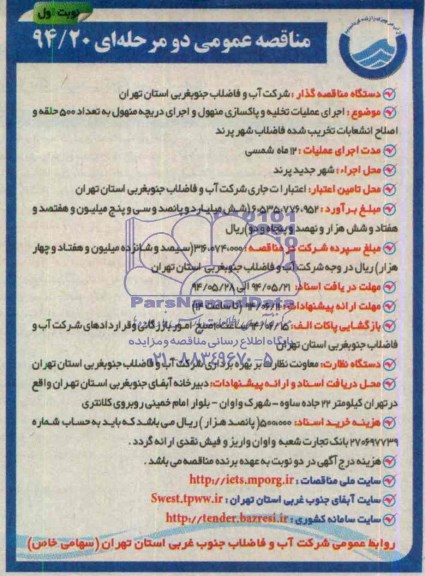 نوبت اول
مناقصه عمومی دو مرحله‌ای ۹۴/۲۰
دستگاه مناقصه گذار : شرکت آب و فاضلاب جنوبغربی استان تهران
موضوع : اجرای عملیات تخلیه و پاکسازی منهول و اجرای دریچه منهول به تعداد ۵۰۰ حلقه و
اصلاح انشعابات تخریب شده فاضلاب شهر پرند
مدت اجرای عملیات : ۱۲ ماه شمسی
محل اجراء : شهر جدید پرند
محل تامین اعتبار: اعتبارات جاری شرکت آب و فاضلاب جنوبغربی استان تهران
مبلغ برآورد : ۶۰۵۳۵۰۷۷۶۰۹۵۲ (شش میلیارد و پانصد و سی و پنج میلیون و هفتصد و
هفتاد و شش هزار و نهصد و پنجاه و دو) ریال
مبلغ سپرده شرکت در مناقصه : ۳۱۶۰۰۷۴۰۰۰۰ (سیصد و شانزده میلیون و هفتاد و چهار
هزار) ریال در وجه شرکت آب و فاضلاب جنوبغربی استان تهران
مهلت دریافت اسناد: ۹۴/۰۵/۲۱ الی ۹۴/۰۵/۲۸
مهلت ارائه پیشنهادات :
بازگشایی پاکات الف: امور بازرگانی و قراردادهای شرکت آب و
فاضلاب جنوبغربی استان تهران
ParsNamadData
پایگاه اطلاع رسانی مناقصه و مزایده
۰۲۱-۸۸۳۴۹۶۷۰-۵
دستگاه نظارت: معاونت نظارت بر بهره برداری شرکت آب و فاضلاب جنوبغربی استان تهران
محل دریافت اسناد و ارائه پیشنهادات: دبیرخانه آبفای جنوبغربی استان تهران واقع
در تهران کیلومتر ۲۲ جاده ساوه - شهرک واوان - بلوار امام خمینی روبروی کلانتری
هزینه خرید اسناد: ۵۰۰۰۰۰۰ (پانصد هزار) ریال می باشد که باید به حساب شماره
۲۷۰۶۹۷۷۳۹ بانک تجارت شعبه واوان واریز و فیش نقدی ارائه گردد .
هزینه درج آگهی در دو نوبت به عهده برنده مناقصه می باشد .
سایت ملی مناقصات : http://iets.mporg.ir
سایت آبفای جنوب غربی استان تهران : Swest.tpww.ir
سایت سامانه کشوری : http://tender.bazresi.ir
روابط عمومی شرکت آب و فاضلاب جنوب غربی استان تهران (سهامی خاص)